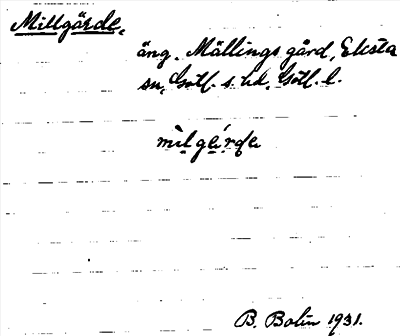 Millgärde,
äng. Mällings gård, Eksta
sn, Gotl. s. hd, Gotl. l.
mìlgéͅrdͅa
B. Bolin 1931.